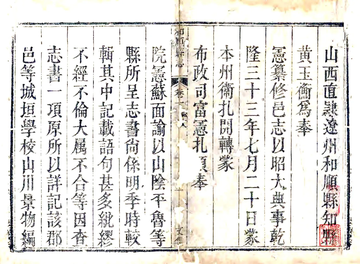 山西直隸遼州和順縣知縣
黃玉衡爲奉
憲纂修邑志以昭大典事乾
隆三十三年七月二十日蒙
本州衛扎開轉蒙
布政司富憲扎頂奉
院憲蘇面諭以山陰平魯等
縣所呈志書尚係明季時較
輯其中記載語句甚多紕繆
不經不倫大属不合等因查
志書一項原所以詳記該郡
邑等城垣學校山川景物編